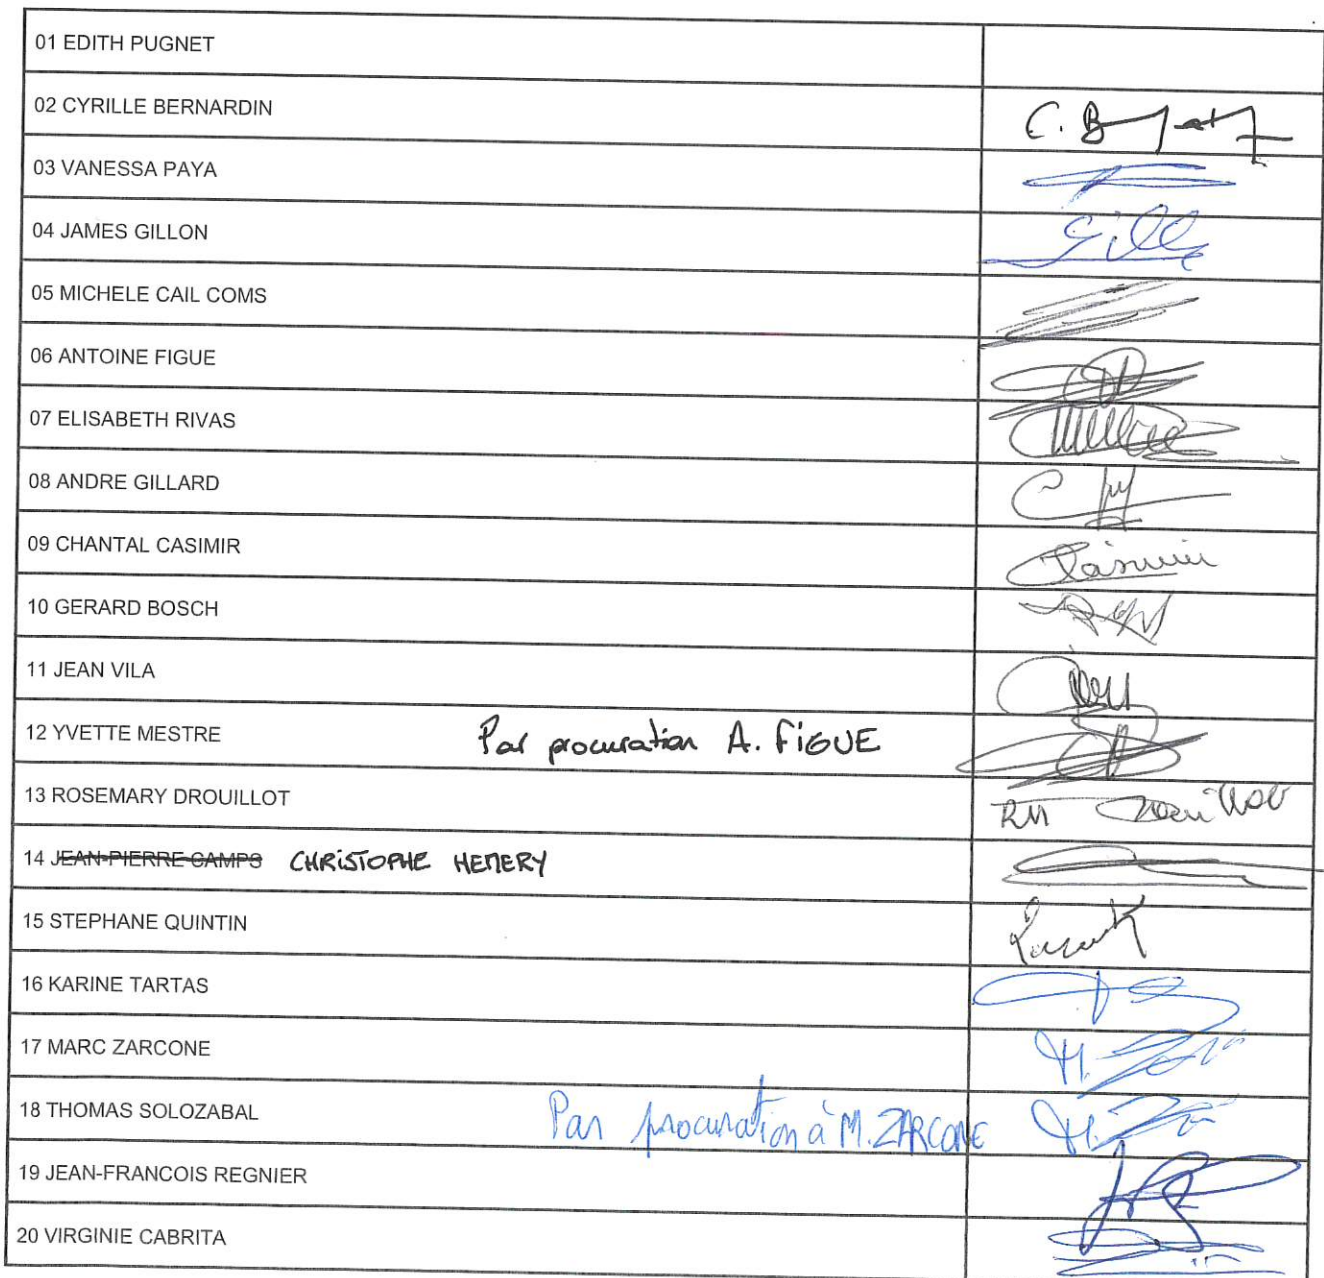 01 EDITH PUGNET
02 CYRILLE BERNARDIN
03 VANESSA PAYA
04 JAMES GILLON
05 MICHELE CAIL COMS
06 ANTOINE FIGUE
07 ELISABETH RIVAS
08 ANDRE GILLARD
09 CHANTAL CASIMIR Casimir
10 GERARD BOSCH
11 JEAN VILA
12 YVETTE MESTRE Par procuration A. FIGUE
13 ROSEMARY DROUILLOT RM Drouillot
14 JEAN-PIERRE CAMPS CHRISTOPHE HEMERY
15 STEPHANE QUINTIN
16 KARINE TARTAS
17 MARC ZARCONE
18 THOMAS SOLOZABAL Par procuration à M. ZARCONE
19 JEAN-FRANCOIS REGNIER
20 VIRGINIE CABRITA